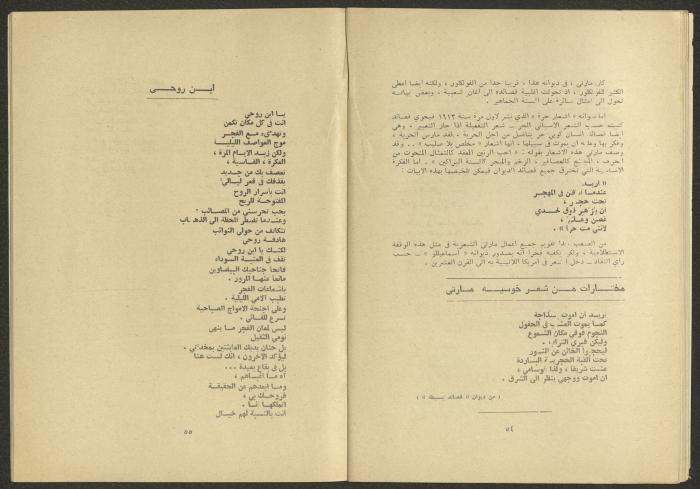 كان مارتي ، في ديوانه هذا ، قريبا جدا من الفولكلور ، ولكنه ايضا اعطى
الكثير للفولكلور ، اذ تحولت اغلبية قصائده الى أغان شعبية ، وبعض بياته
تحول الى امثال سائرة على السنة الجماهير .
اما ديوانه « اشعار حرة » الذي نشر لاول مرة سنة ١٩١٣ فيحوي قصائد
كتبت حسب الشعر الاسباني الحر ــ شعر التفعيلة اذا جاز التعبير ، وهي
ايضا قصائد انسان كوبي حر يناضل من اجل الحرية ، لقد مارس الحرية ،
وفكر بها وعليه ان يموت في سبيلها ، انها اشعار « مخلص بلا صليب » .. وقد
وصف مارتي هذه الاشعار بقوله : « احب الرنين المعقد كالتمثال المنحوت من
الخزف ، المتاجج كالعصافير ، الزخم والمبحر كالسنة البراكين » .. اما الفكرة
الاساسية التي تخترق جميع قصائد الديوان فيمكن تلخيصها بهذه الابيات :
« اريد
عندما ادفن في المهجر
تحت حجر ،
ان يزهر فوق لحدي
غصن وعلم ،
لانني مت حرا » .
من الصعب تقويم جميع اعمال مارتي الشعرية في مثل هذه الوقفة
الاستطلاعية ، ولكن يكفيه فخرا أنه بصدور ديوانه « اسماعيللو » ــ حسب
راي النقاد ــ دخل الشعر في امريكا اللاتينية به الى القرن العشرين .
مختارات من شعر خوسيه مارتي
اريد ان اموت بسذاجة
كما يموت العشب في الحقول
النجوم فوقي مكان الشموع
وليكن قبري التراب .
فيحجزوا الخائن عن النور
تحت القبة الحجرية الباردة
عشت شريفا ، ولذا اوسامي ،
ان اموت ووجهي ينظر الى الشرق .
( من ديوان « قصائد بسيطة » )
٥٤
ابن روحي
يا ابن روحي
انت في كل مكان تكمن
وتهدىء مع الفجر
موج العواصف الليليا
ولكن زبد الايام المرة ،
الفكرة ، القاسية ،
تعصف بك من جديد
بقذفك في قعر ليالي
انت باسرار الروح
المفتوحة للريح
بحب تحرسني من المصائب ؛
وعندما تضطر للحظة الى الذهاب
تتكاتف من حولي النوائب
هادفة روحي
لكنك يا ابن روحي
تقف في العتبة السوداء
فاتحا جناحيك البيضاوين
مانعا عنها المرور .
باشعاعات الفجر
تطيب الامي الليلية .
وعلى اجنحة الامواج الصباحية
تسرع للقائي .
ليس لمعان الفجر ما ينهي
نومي الثقيل
بل حنان يديك العابثتين بمخدتي .
ليؤكد الآخرون ، انك لست هنا
بل في بقاع بعيدة ...
آه ما اغباهم ،
وما ابعدهم عن الحقيقة
فروحك بي ،
انملكها انا .
انت بالنسبة لهم خيال
٥٥